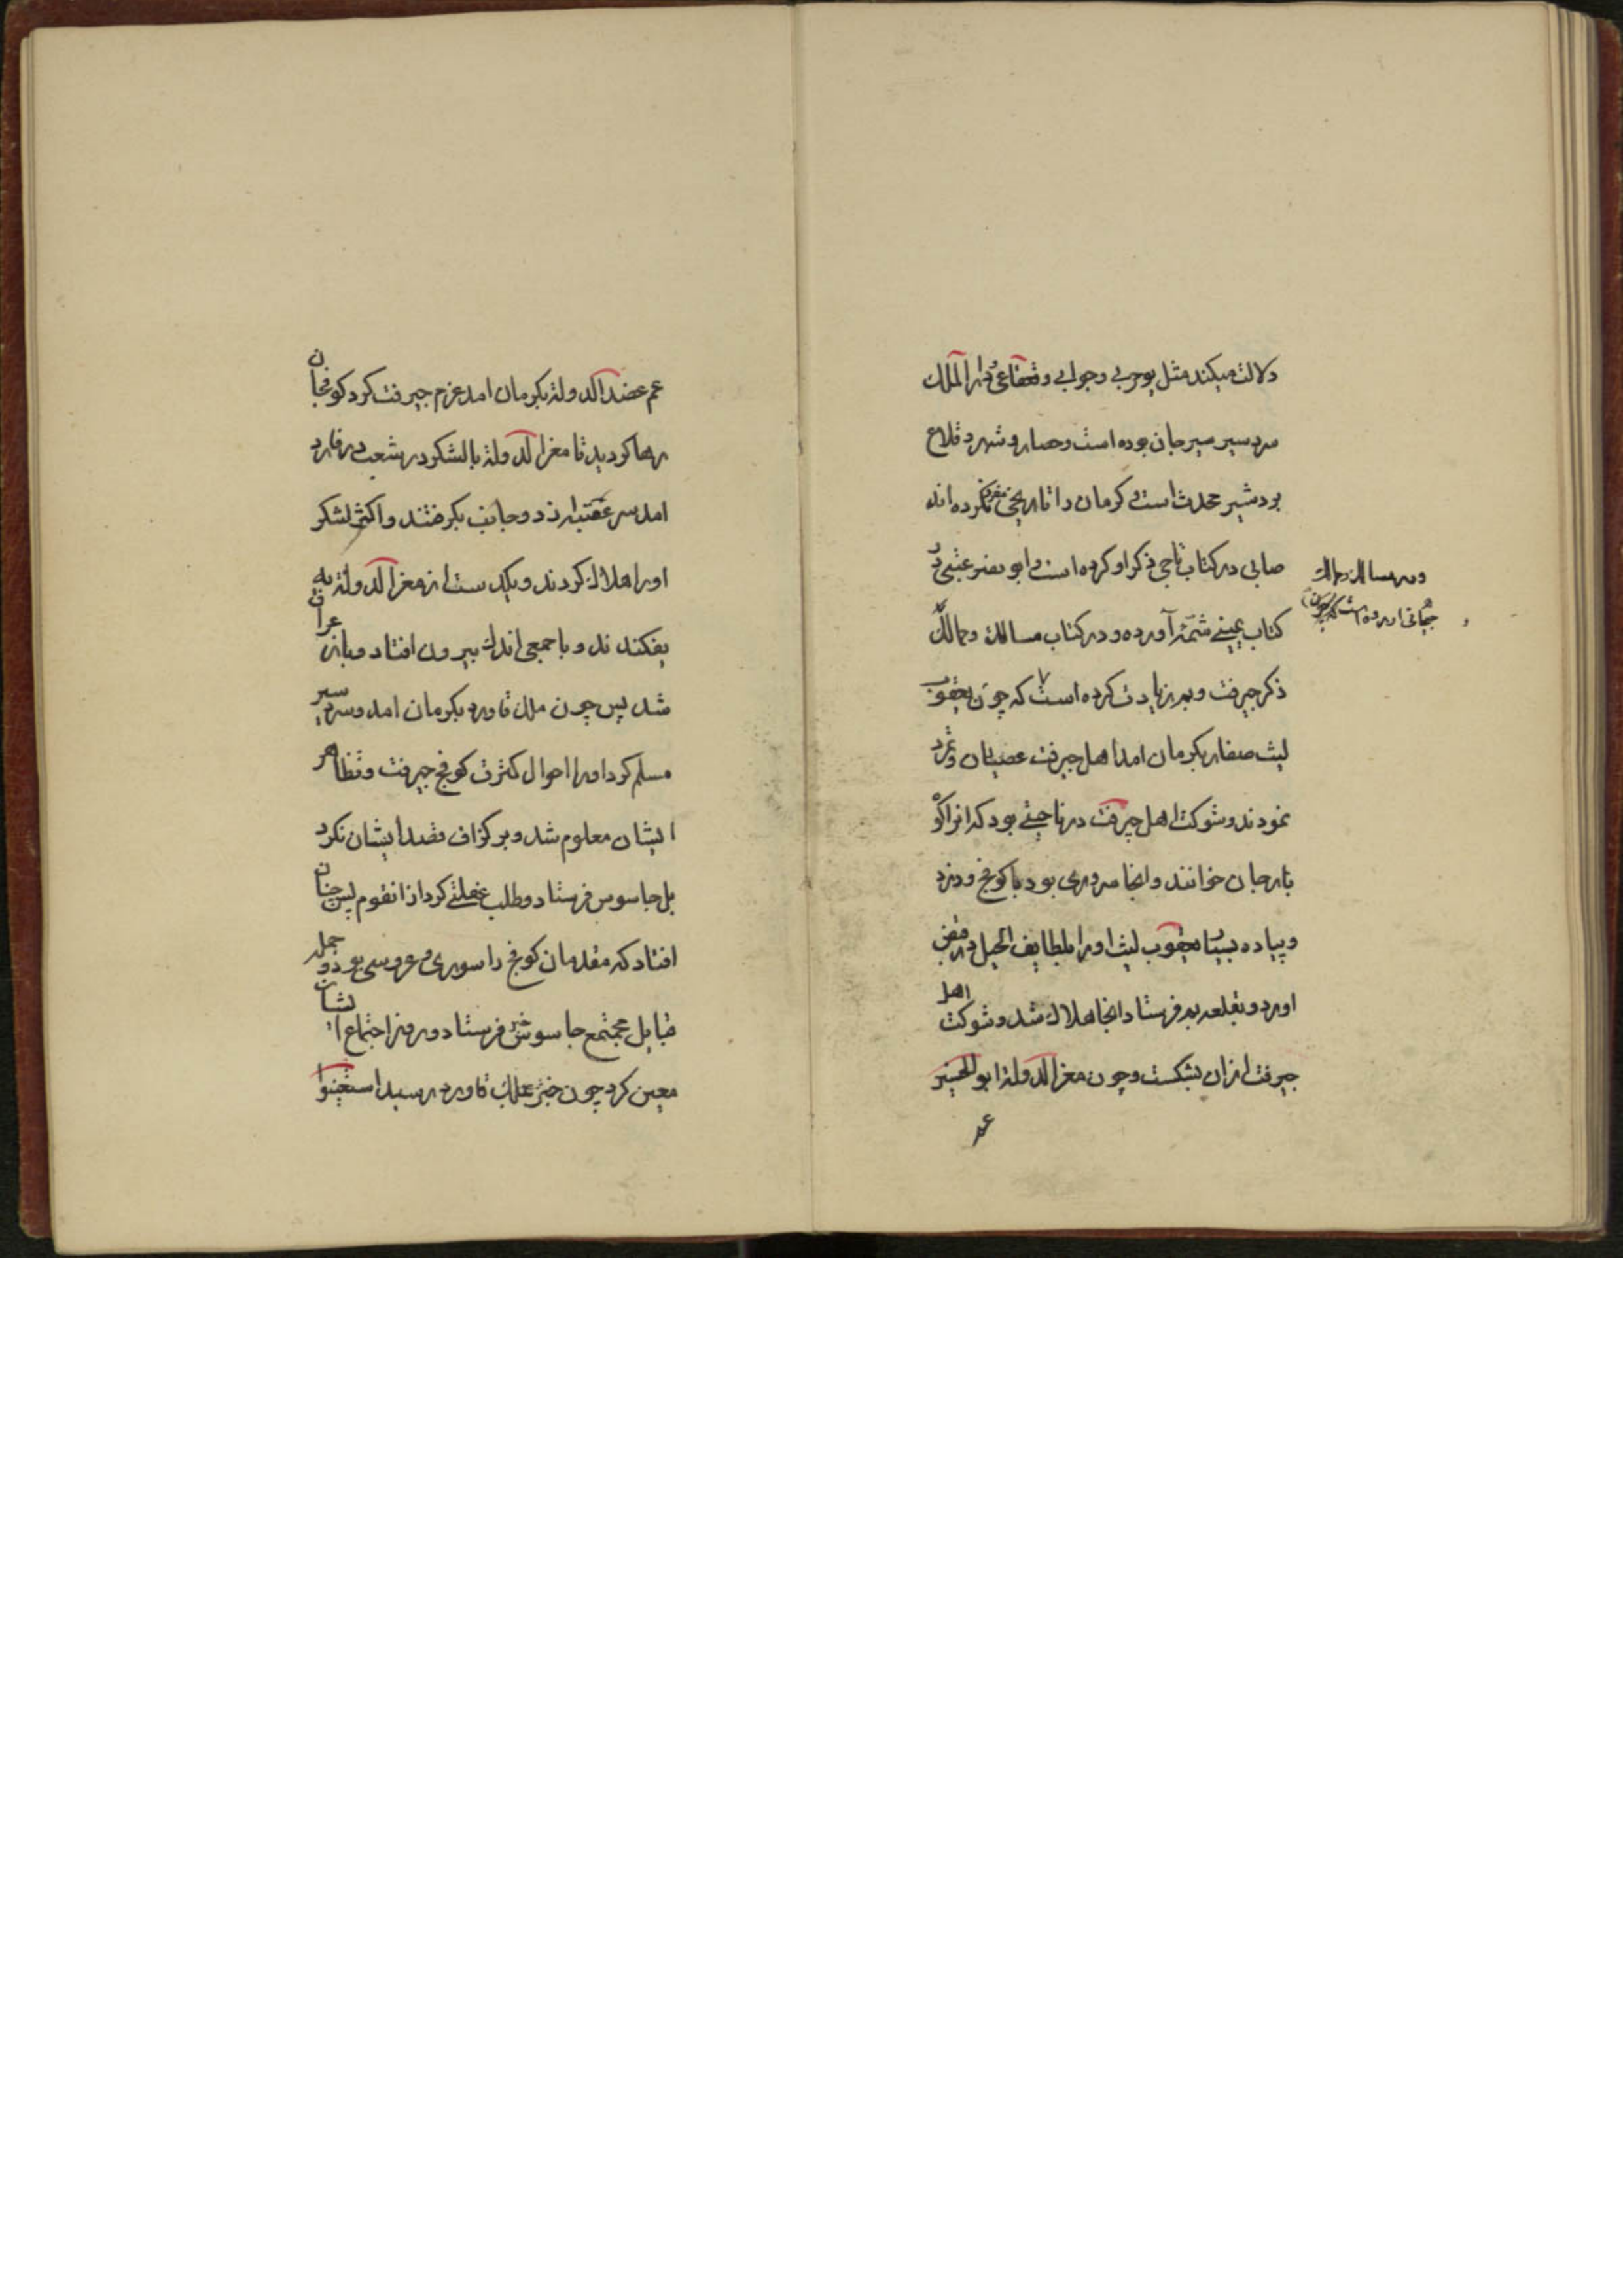 دلالت میکند مثل بوحربی وجولبی وفقاعی ودار الملك
سردسیر سیرجان بوده است وحصار وشهر وقلاع
بردشیر محدث است و کرمان را تاریخی مفرد نکرده اند
صابی در کتاب تاجی ذکر او کرده است وابو نصر عتبی در
کتاب یمینی شمّه آورده و در کتاب مسالك وممالك
ذکر جیرفت وبم زیادت کرده است که چون یعقوب
لیث صفار بکرمان امد اهل جیرفت عصیان وتمرد
نمودند وشوکت اهل جیرفت در ناحیتی بود که انرا کو
بارجان خوانند وانجا سروری بود با کوفج ودزد
وپیاده بسیار یعقوب لیث اورا بلطایف الحیل در قبض
اورد وبقلعه بم فرستاد انجا هلاك شد وشوکت اهل
جیرفت ازان بشکست وچون معز الدولة ابو الحسین
عم
ودر مسالك وممالك
جیهانی اورده است که چون
عم عضد الدولة بکرمان امد عزم جیرفت کرد کوفجان
رها کردید تا معز الدولة با لشکر در شعب درفارد
امد سر عقبه از دو جانب بکرفتند واکثر لشکر
اورا هلاك کردند ویکدست از معز الدولة به
بفکندند وبا جمعی اندك بیرون افتاد وباز عراق
شد پس چون ملك قاورد بکرمان امد وسردسیر
مسلم کرد اورا احوال کثرت کوفج جیرفت وتظاهر
ایشان معلوم شد وبر کزاف قصد ایشان نکرد
بل جاسوس فرستاد وطلب غفلتی کرد از انقوم پس چنان
افتاد که مقدمان کوفج را سوری وعروسی بود وجمله
قبایل مجتمع جاسوس فرستاد وروز اجتماع ایشان
معین کرد چون خبر بملك قاورد رسید استعینوا